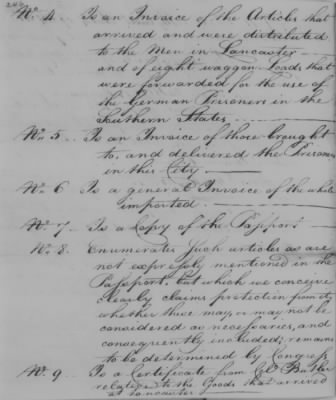 No. 4 Is an Invoice of the Articles that
arrived and were distributed
to the Men in Lancaster
and of eight waggon Loads that
were forwarded for the use of
the German Prisoners in the
Southern States
No. 5 Is an Invoice of those brought
to, and delivered the Prisoners
in this City
No. 6 Is a general Invoice of the whole
imported
No. 7 Is a Copy of the Passport
No. 8. Enumerates such articles as are
not expressly mentioned in the
Passport, but which we conceive
clearly claims protection from it,
whether these may, or may not be
considered as necessaries, and
consequently included; remains
to be determined by Congress
No. 9 Is a Certificate from Colo. Butler
relative to the Goods that arrived
at Lancaster